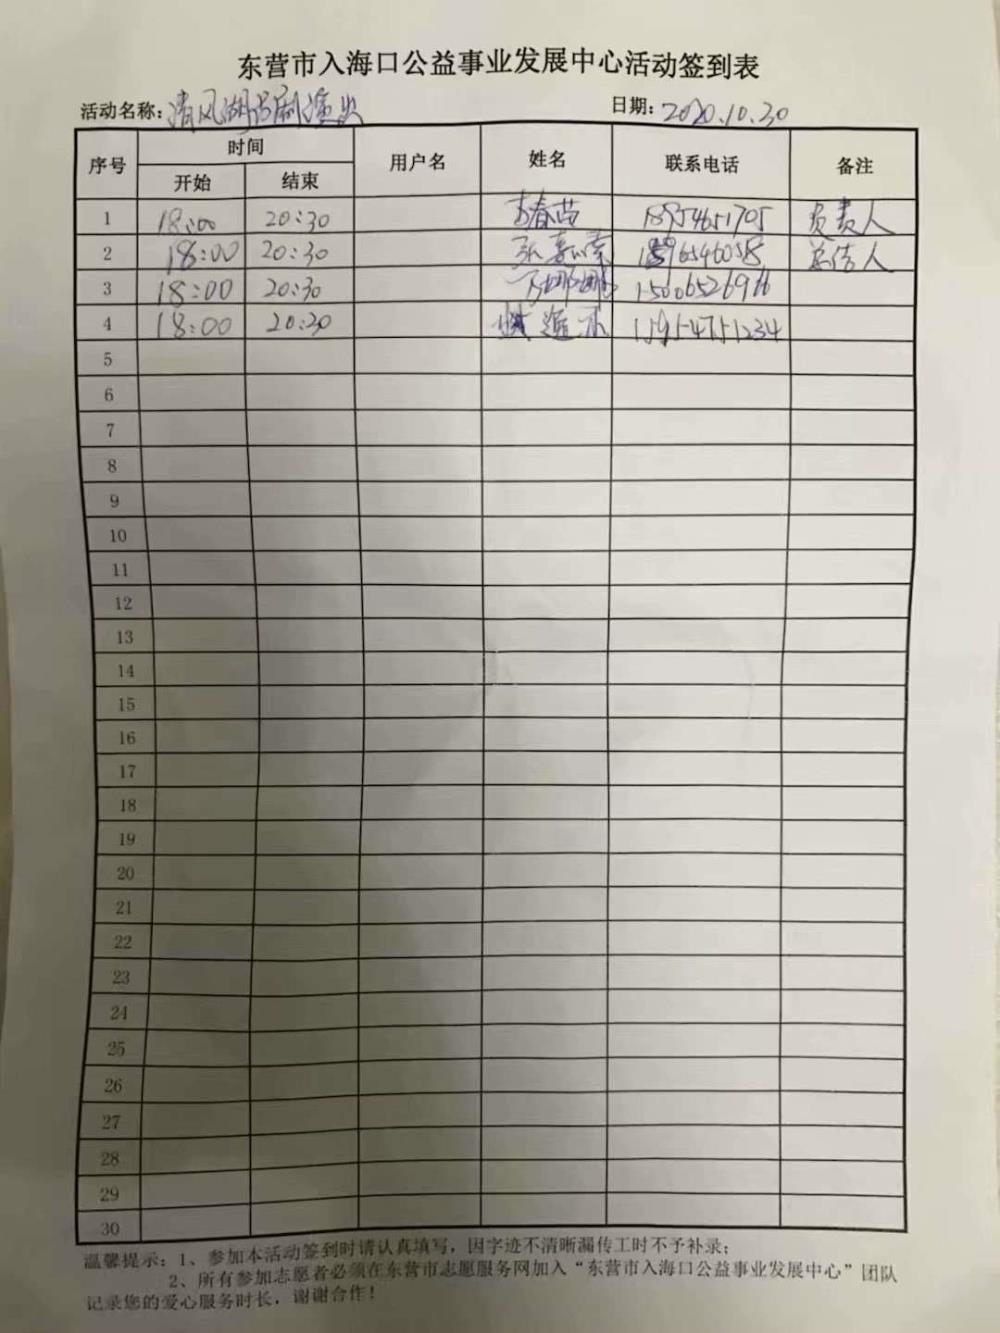 东营市入海口公益事业发展中心活动签到表
活动名称：清风湖吕剧演出 日期：2020.10.30
序号 时间 用户名 姓名 联系电话 备注
开始 结束
1 18:00 20:30 春苗 18954651705 负责人
2 18:00 20:30 张 总结人
3 18:00 20:30 万娜娜
4 18:00 20:30 15954751234
5
6
7
8
9
10
11
12
13
14
15
16
17
18
19
20
21
22
23
24
25
26
27
28
29
30
温馨提示：1、参加本活动签到时请认真填写，因字迹不清晰漏传工时不予补录；
2、所有参加志愿者必须在东营市志愿服务网加入“东营市入海口公益事业发展中心”团队
记录您的爱心服务时长，谢谢合作！